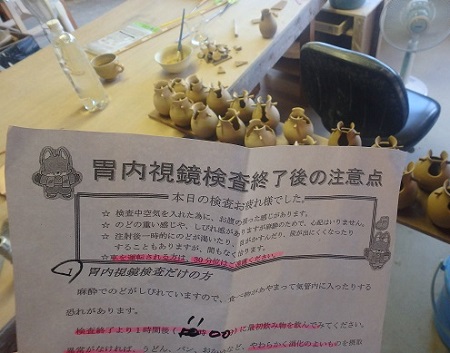 胃内視鏡検査終了後の注意点
本日の検査お疲れ様でした。
☆ 検査中空気を入れた為に、お腹の張った感じがあります。
☆ のどの重い感じや、しびれ感がありますが麻酔のためで、心配はいりません。
☆ 注射後一時的にのどが渇いたり、目がかすんだり、尿が出にくくなったり
することもありますが、間もなく
☆ 車を運転される方は、
① 胃内視鏡検査だけの方
麻酔でのどがしびれていますので、食べ物があやまって気管内に入ったりする
恐れがあります。
検査終了より1時間後( 00 )に最初飲み物を飲んでみてください。
異常がなければ、うどん、パン、おかゆなど、やわらかく消化のよいものを摂取